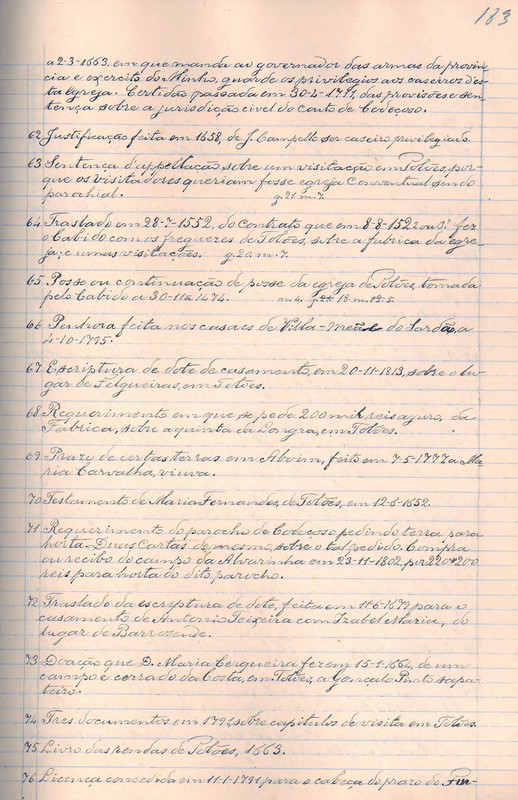 183
a 2-3-1663, em que manda ao governador das armas da provin-
cia e exercito do Minho, guarde os privilegios aos caseiros d'es-
ta Egreja. Certidão passada em 30-4-1771, das provisões e sen-
tença sobre a jurisdição civel do couto de Codeçoso.
62 Justificação feita em 1658, de J. Campello ser caseiro privilegiado.
63 Sentença d'appellação sobre um visitação em Tolões, por-
que os visitadores queriam fosse egreja Conventual sendo
parochial. g. 21. m. 7.
64 Traslado em 28-7-1552, do contrato que em 8-8-1522 fez
o Cabido com os freguezes de Tolões, sobre a fabrica da egre-
ja, e umas visitações. g. 20. m. 7.
65 Posse ou continuação de posse da egreja de Tolões, tomada
pelo Cabido a 30-11-1474. m. 4. 18. m. 19-5.
66 Penhora feita nos casaes de Villa-Meã do Sardão, a
4-10-1795.
67 Escriptura de dote de casamento, em 20-11-1813, sobre o lu-
gar de Felgueiras, em Tolões.
68 Requerimento em que se pede 200 mil reis a juro, da
Fabrica, sobre a quinta da Longra, em Tolões.
69 Prazo de certas terras em Aboim, feito em 7-5-1777 a Ma-
ria Carvalha, viuva.
70 Testamento de Maria Fernandes, de Tolões, em 12-6-1652.
71 Requerimento do parocho de Codeçoso pedindo terra para
horta. Duas Cartas do mesmo, sobre o tal pedido. Compra
ou recibo do campo da Alvarinha em 23-11-1802, por 220$200
reis para horta do dito parocho.
72 Traslado da escriptura de dote, feita em 11-6-1672 para o
casamento de Antonio Teixeira com Izabel Maria, do
lugar de Barrozende.
73 Doação que D. Maria Cerqueira fez em 15-1-1664, de um
campo e cerrado da Costa, em Tolões, a Gonçalo Pinto sapa-
teiro.
74 Tres documentos em 1791, sobre capitulos de visita em Tolões.
75 Livro das rendas de Tolões, 1663.
76 Licença concedida em 11-1-1791 para o cabeça do prazo de